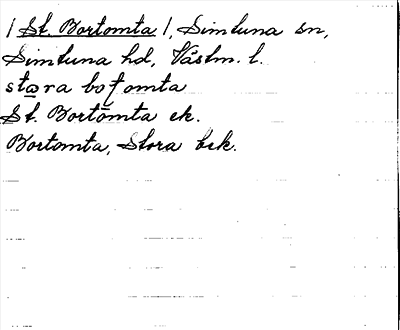 | St. Bortomta |, Simtuna sn,
Simtuna hd, Västm. l.
stara boṭomta
St. Bortomta ek.
Bortomta, Stora bek.